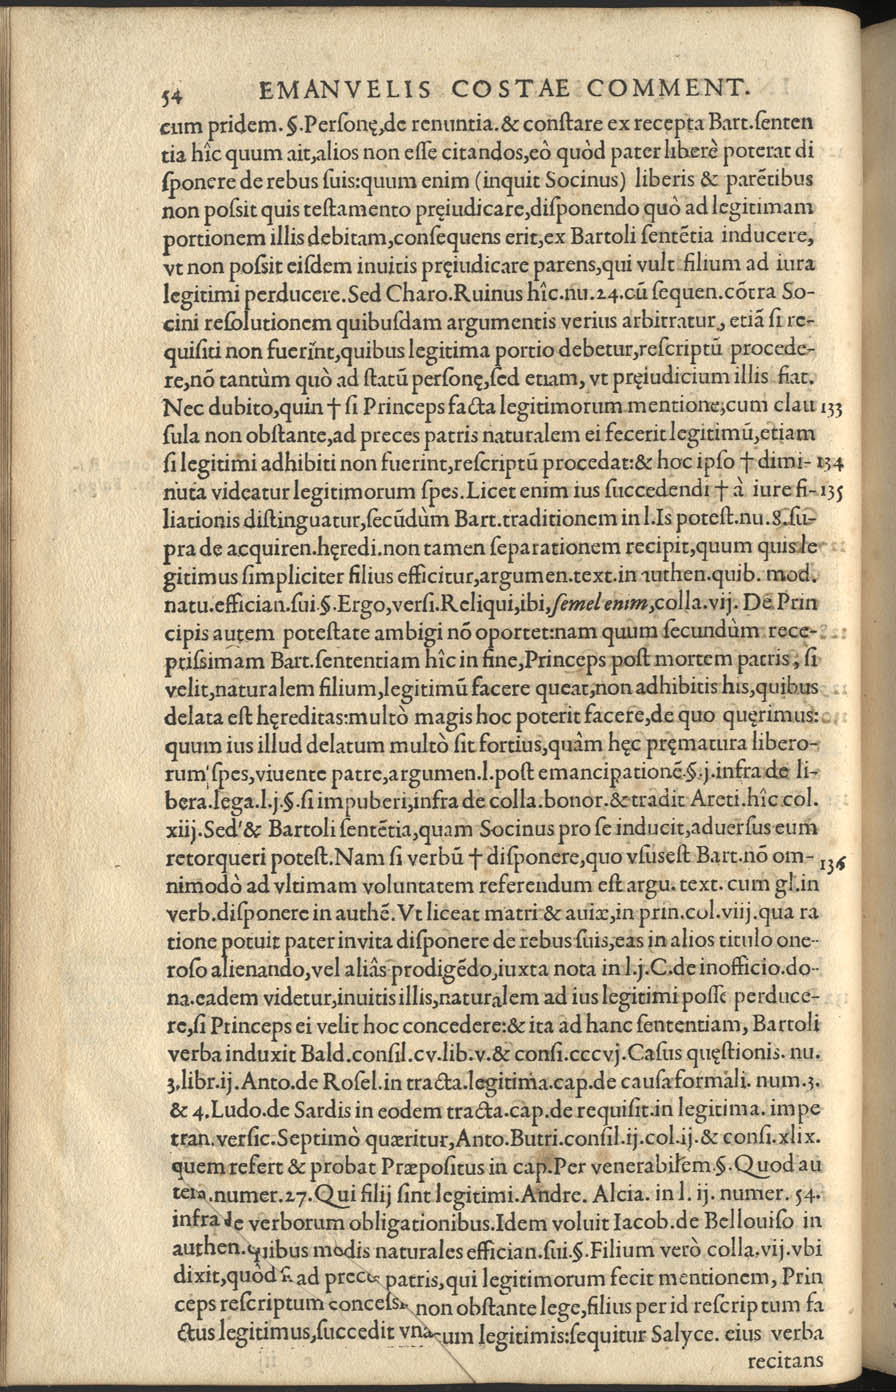 54 EMANVELIS COSTAE COMMENT.
cum pridem. §. Personę, de renuntia. & constare ex recepta Bart. senten
tia hîc quum ait, alios non esse citandos, eò quòd pater liberè poterat di
sponere de rebus suis: quum enim (inquit Socinus) liberis & parẽtibus
non possit quis testamento pręiudicare, disponendo quò ad legitimam
portionem illis debitam, consequens erit, ex Bartoli sentẽtia inducere,
vt non possit eisdem inuitis pręiudicare parens, qui vult filium ad iura
legitimi perducere. Sed Charo. Ruinus hîc. nu. 24. cũ sequen. cõtra So-
cini resolutionem quibusdam argumentis verius arbitratur, etiã si re-
quisiti non fuerint, quibus legitima portio debetur, rescriptũ procede-
re, nõ tantùm quò ad statũ personę, sed etiam, vt pręiudicium illis fiat.
Nec dubito, quin † si Princeps facta legitimorum mentione, cum clau 133
sula non obstante, ad preces patris naturalem ei fecerit legitimũ, etiam
si legitimi adhibiti non fuerint, rescriptũ procedat: & hoc ipso † dimi- 134
nuta videatur legitimorum spes. Licet enim ius succedendi † à iure fi- 135
liationis distinguatur, secũdùm Bart. traditionem in l. Is potest. nu. 8. su-
pra de acquiren. hęredi. non tamen separationem recipit, quum quis le
gitimus simpliciter filius efficitur, argumen. text. in authen. quib. mod.
natu. effician. sui. §. Ergo, versi. Reliqui, ibi, semel enim, colla. vij. De Prin
cipis autem potestate ambigi nõ oportet: nam quum secundùm rece-
ptissimam Bart. sententiam hîc in fine, Princeps post mortem patris, si
velit, naturalem filium, legitimũ facere queat, non adhibitis his, quibus
delata est hęreditas: multò magis hoc poterit facere, de quo quęrimus:
quum ius illud delatum multò sit fortius, quàm hęc pręmatura libero-
rum spes, viuente patre, argumen. l. post emancipationẽ. §. j. infra de li-
bera. lega. l. j. §. si impuberi, infra de colla. bonor. & tradit Areti. hîc col.
xiij. Sed & Bartoli sentẽtia, quam Socinus pro se inducit, aduersus eum
retorqueri potest. Nam si verbũ † disponere, quo vsus est Bart. nõ om- 136
nimodò ad vltimam voluntatem referendum est argu. text. cum gl. in
verb. disponere in authẽ. Vt liceat matri & auiæ, in prin. col. viij. qua ra
tione potuit pater in vita disponere de rebus suis, eas in alios titulo one-
roso alienando, vel aliâs prodigẽdo, iuxta nota in l. j. C. de inofficio. do-
na. eadem videtur, inuitis illis, naturalem ad ius legitimi posse perduce-
re, si Princeps ei velit hoc concedere: & ita ad hanc sententiam, Bartoli
verba induxit Bald. consil. cv. lib. v. & consi. cccvj. Casus quęstionis. nu.
3. libr. ij. Anto. de Rosel. in tracta. legitima. cap. de causa formali. num. 3.
& 4. Ludo. de Sardis in eodem tracta. cap. de requisit. in legitima. impe
tran. versic. Septimò quæritur, Anto. Butri. consil. ij. col. ij. & consi. xlix.
quem refert & probat Præpositus in cap. Per venerabilem. §. Quod au
tem. numer. 27. Qui filij sint legitimi. Andre. Alcia. in l. ij. numer. 54.
infra de verborum obligationibus. Idem voluit Iacob. de Bellouiso in
authen. quibus modis naturales effician. sui. §. Filium verò colla. vij. vbi
dixit, quòd si ad preces patris, qui legitimorum fecit mentionem, Prin
ceps rescriptum concess. non obstante lege, filius per id rescriptum fa
ctus legitimus, succedit vna cum legitimis: sequitur Salyce. eius verba
recitans